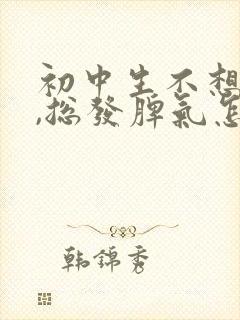 初中生不想
,总發脾氣怎
韩錦秀